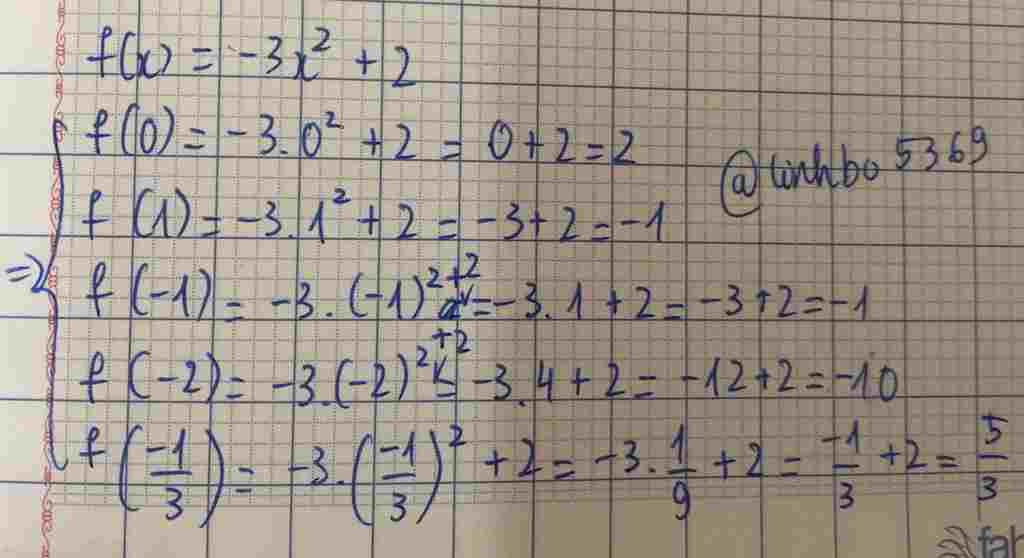 f(x) = -3x² + 2
f(0) = -3.0² + 2 = 0 + 2 = 2
@linhbo5369
f(1) = -3.1² + 2 = -3 + 2 = -1
=> f(-1) = -3.(-1)²+2 = -3.1 + 2 = -3 + 2 = -1
f(-2) = -3.(-2)²+2 = -3.4 + 2 = -12 + 2 = -10
f(-1/3) = -3.(-1/3)² + 2 = -3.1/9 + 2 = -1/3 + 2 = 5/3